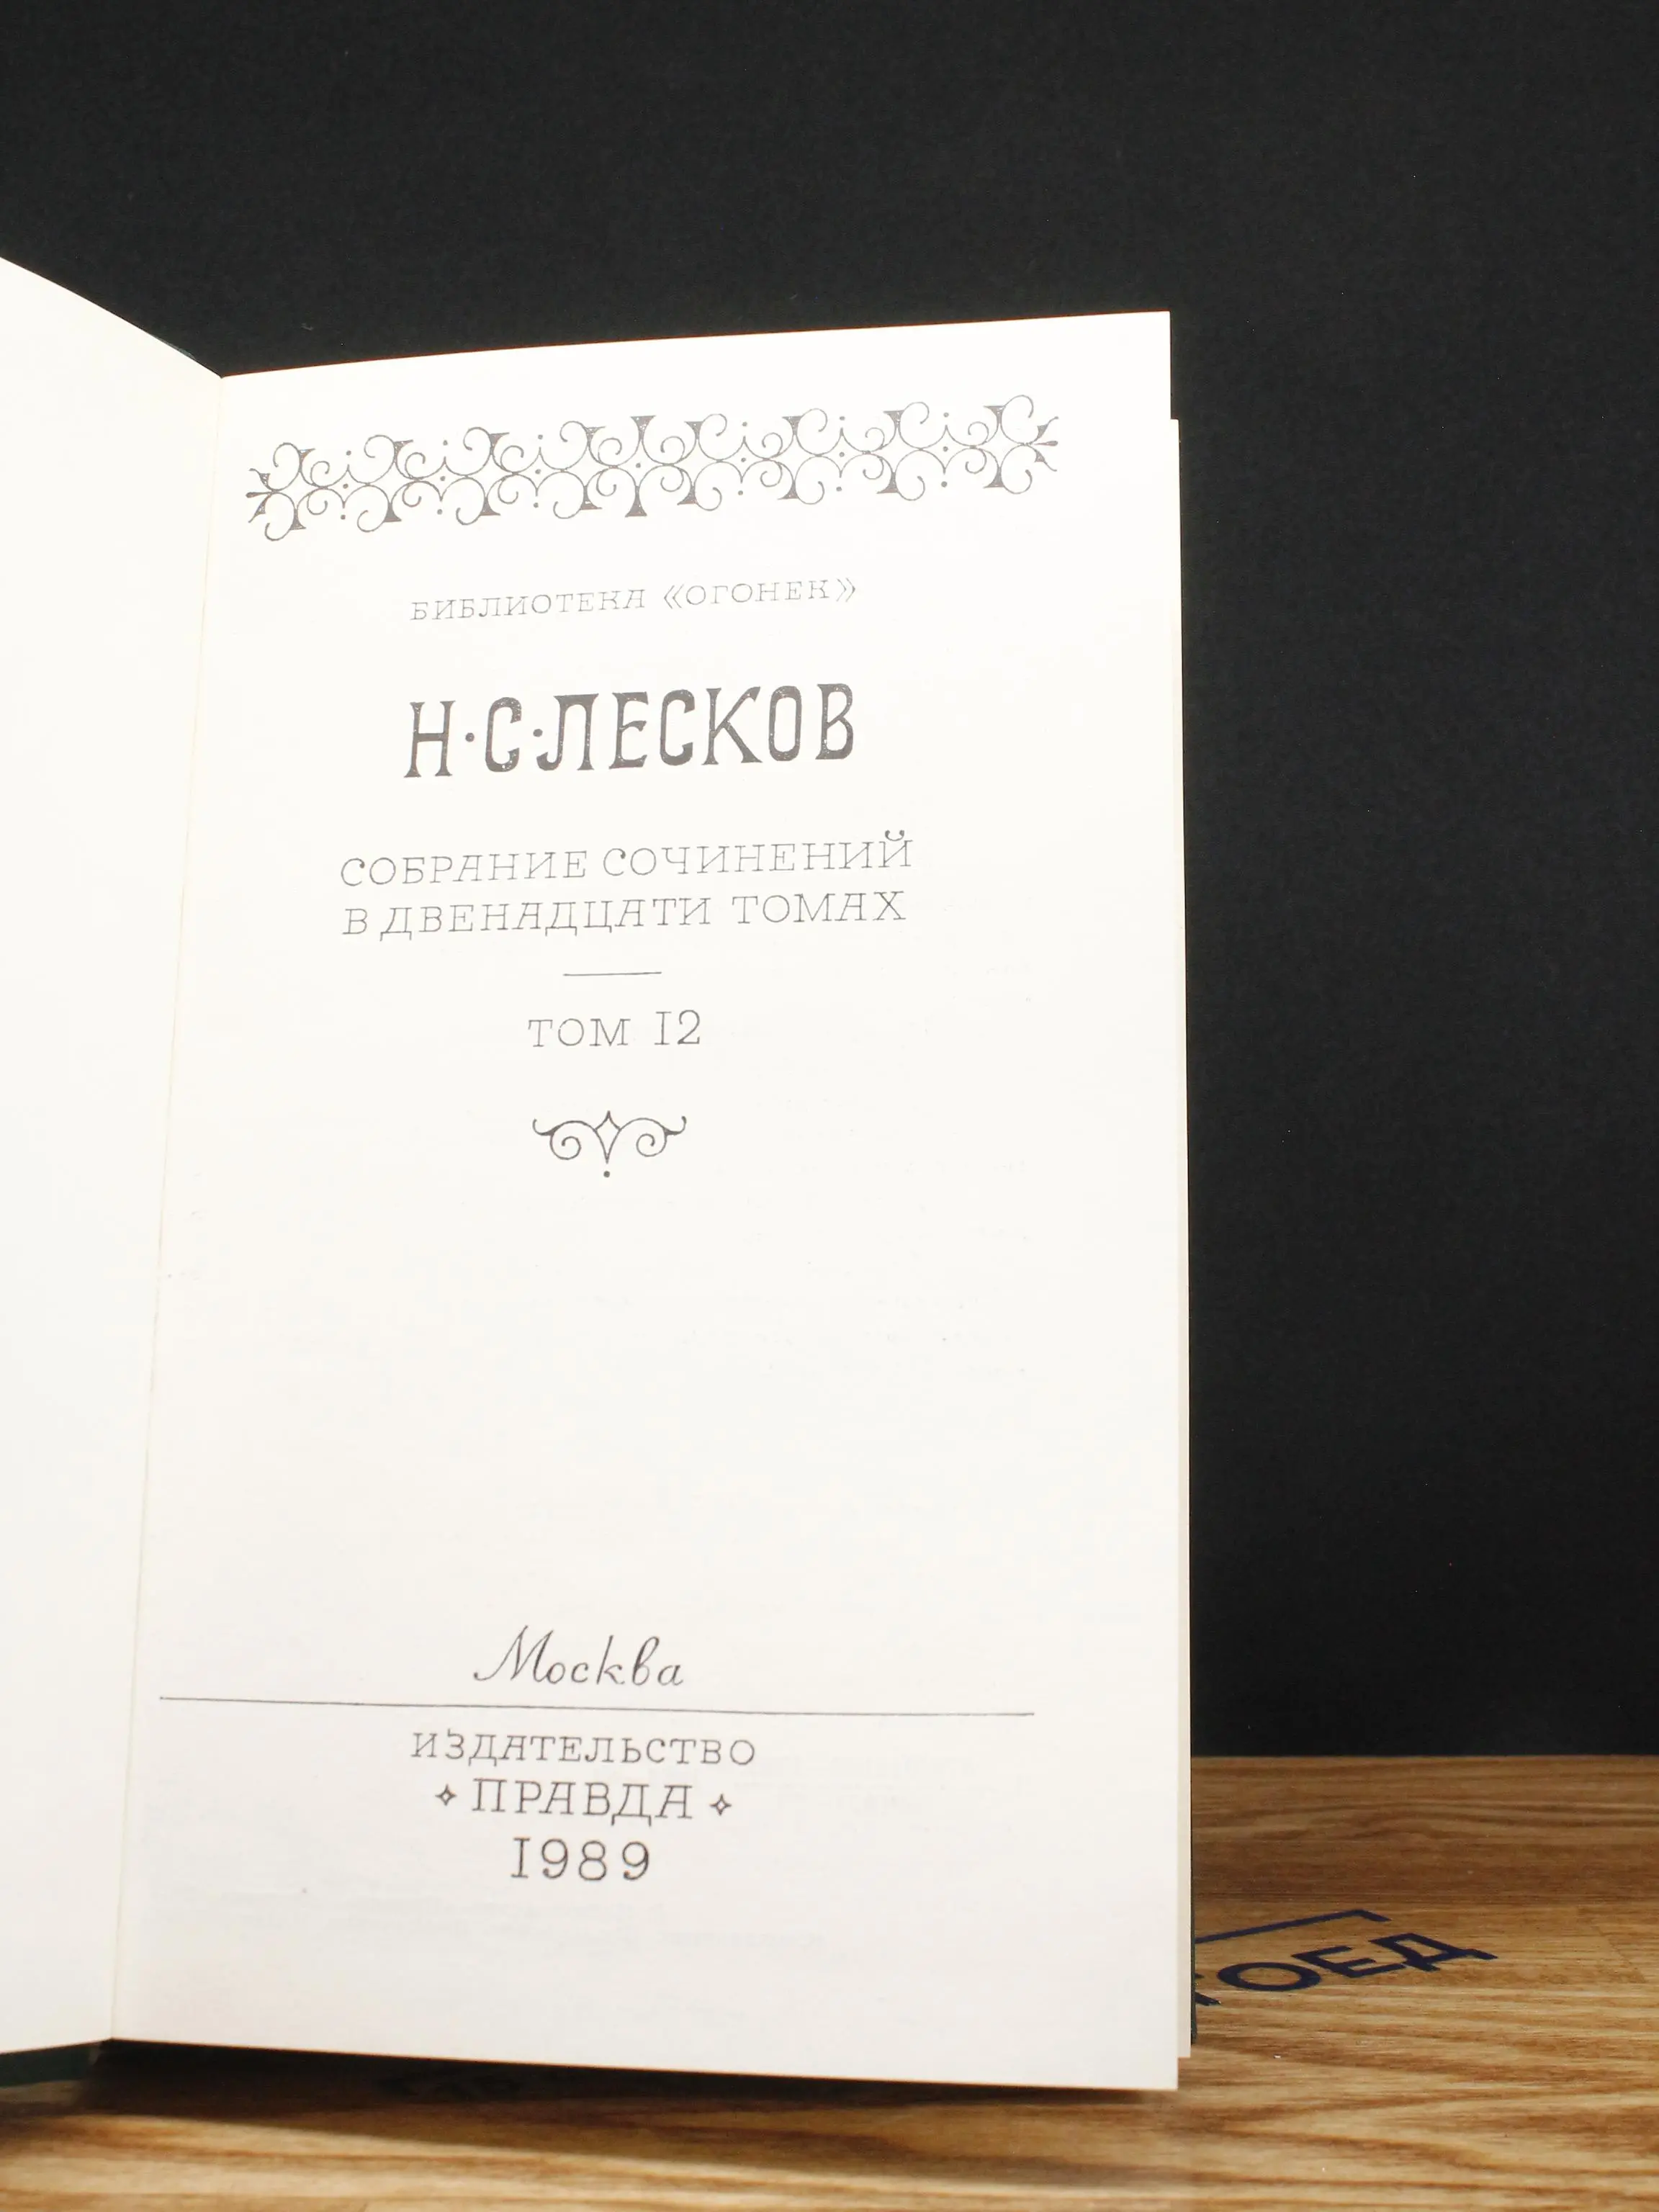 БИБЛИОТЕКА «ОГОНЕК»
Н·С·ЛЕСКОВ
СОБРАНИЕ СОЧИНЕНИЙ
В ДВЕНАДЦАТИ ТОМАХ
ТОМ 12
Москва
ИЗДАТЕЛЬСТВО
ПРАВДА
1989